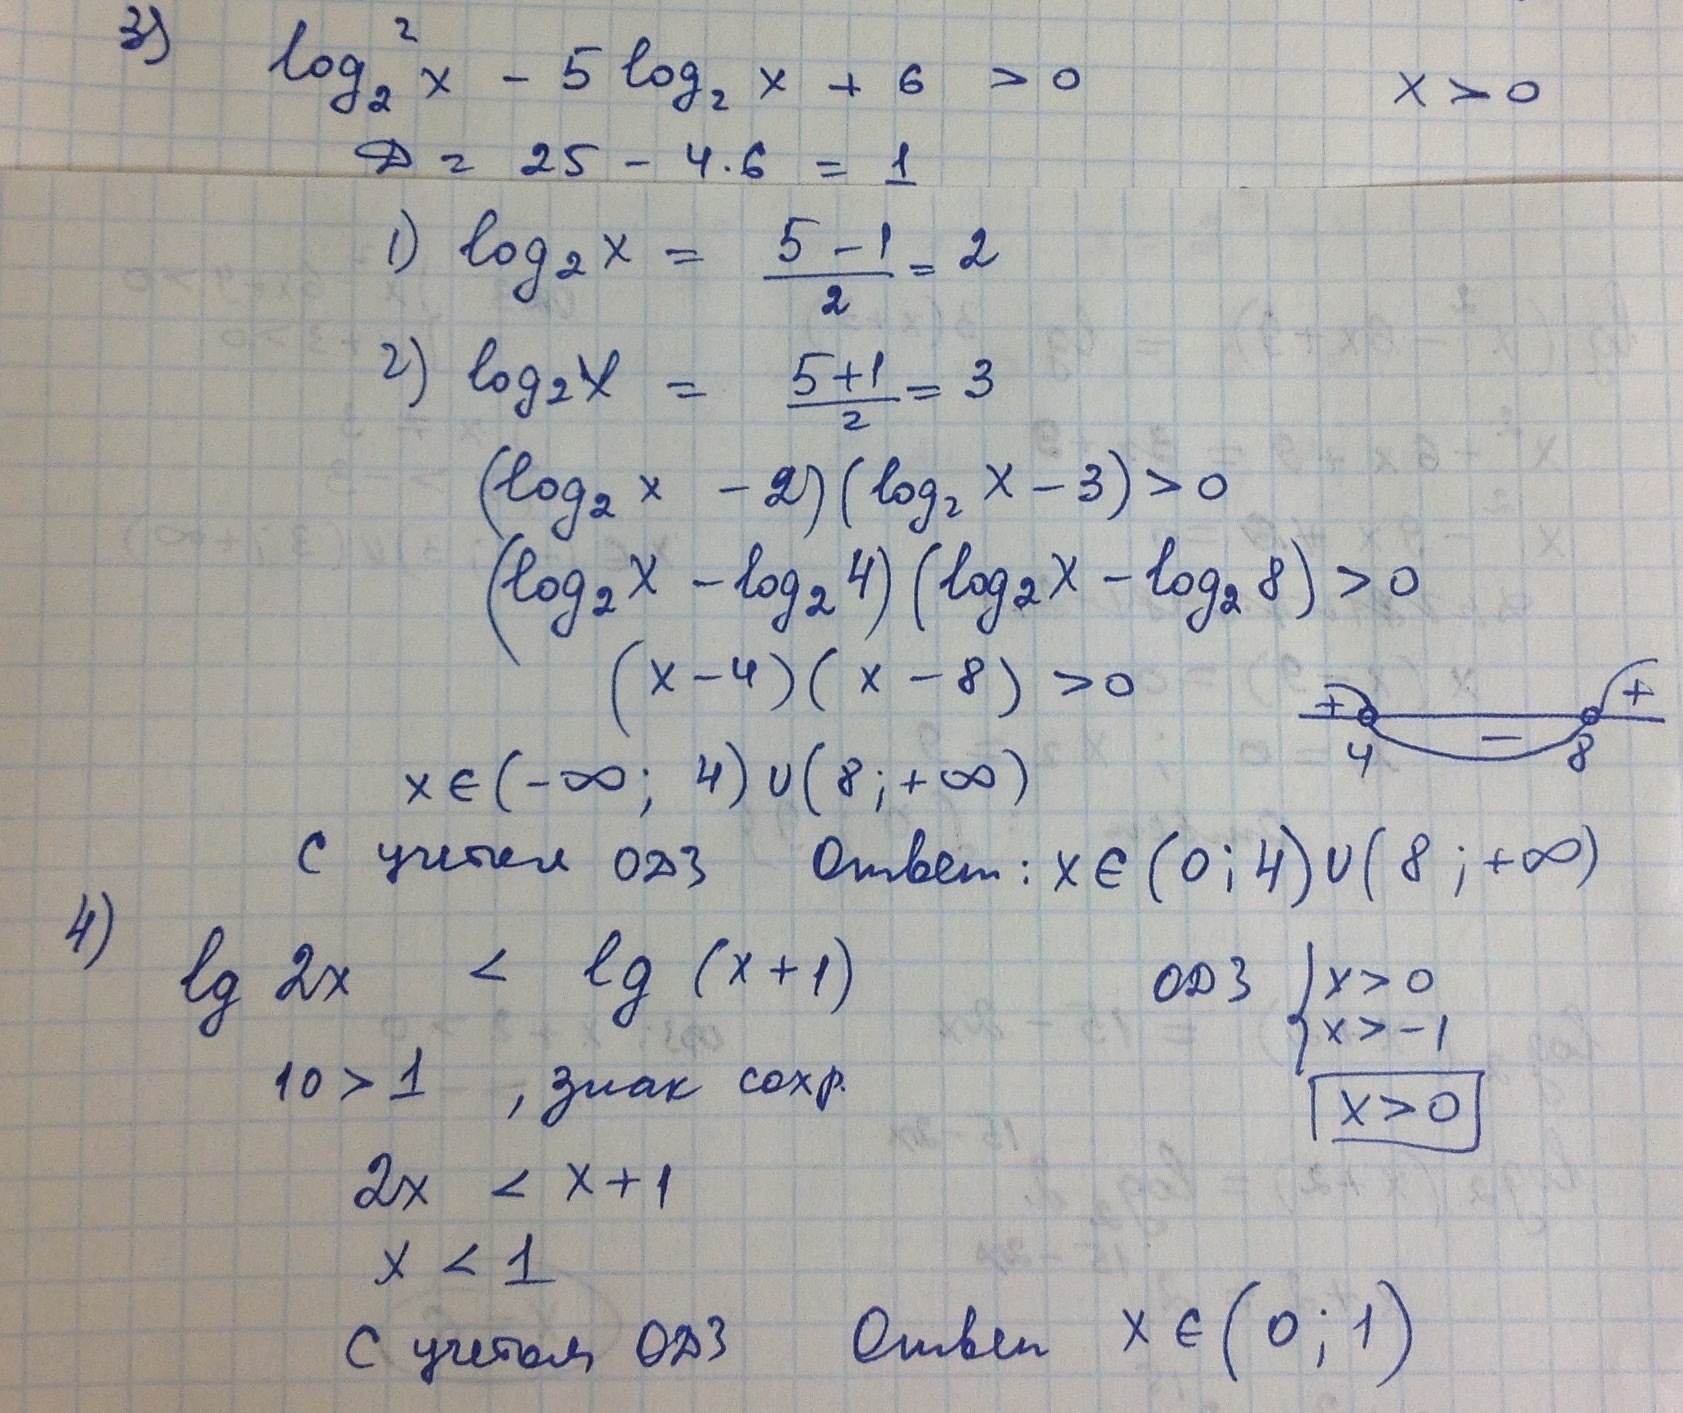 3) log₂²x - 5 log₂ x + 6 > 0 x > 0
D = 25 - 4·6 = 1
1) log₂x = (5-1)/2 = 2
2) log₂x = (5+1)/2 = 3
(log₂x - 2)(log₂x - 3) > 0
(log₂x - log₂4)(log₂x - log₂8) > 0
(x-4)(x-8) > 0
+ - +
4 8
x∈(-∞; 4)∪(8;+∞)
С учетом ОДЗ Ответ: x∈(0;4)∪(8;+∞)
4) lg 2x < lg (x+1) ОДЗ { x>0
x>-1
10>1, знак сохр. x>0
2x < x+1
x < 1
С учетом ОДЗ Ответ x∈(0;1)